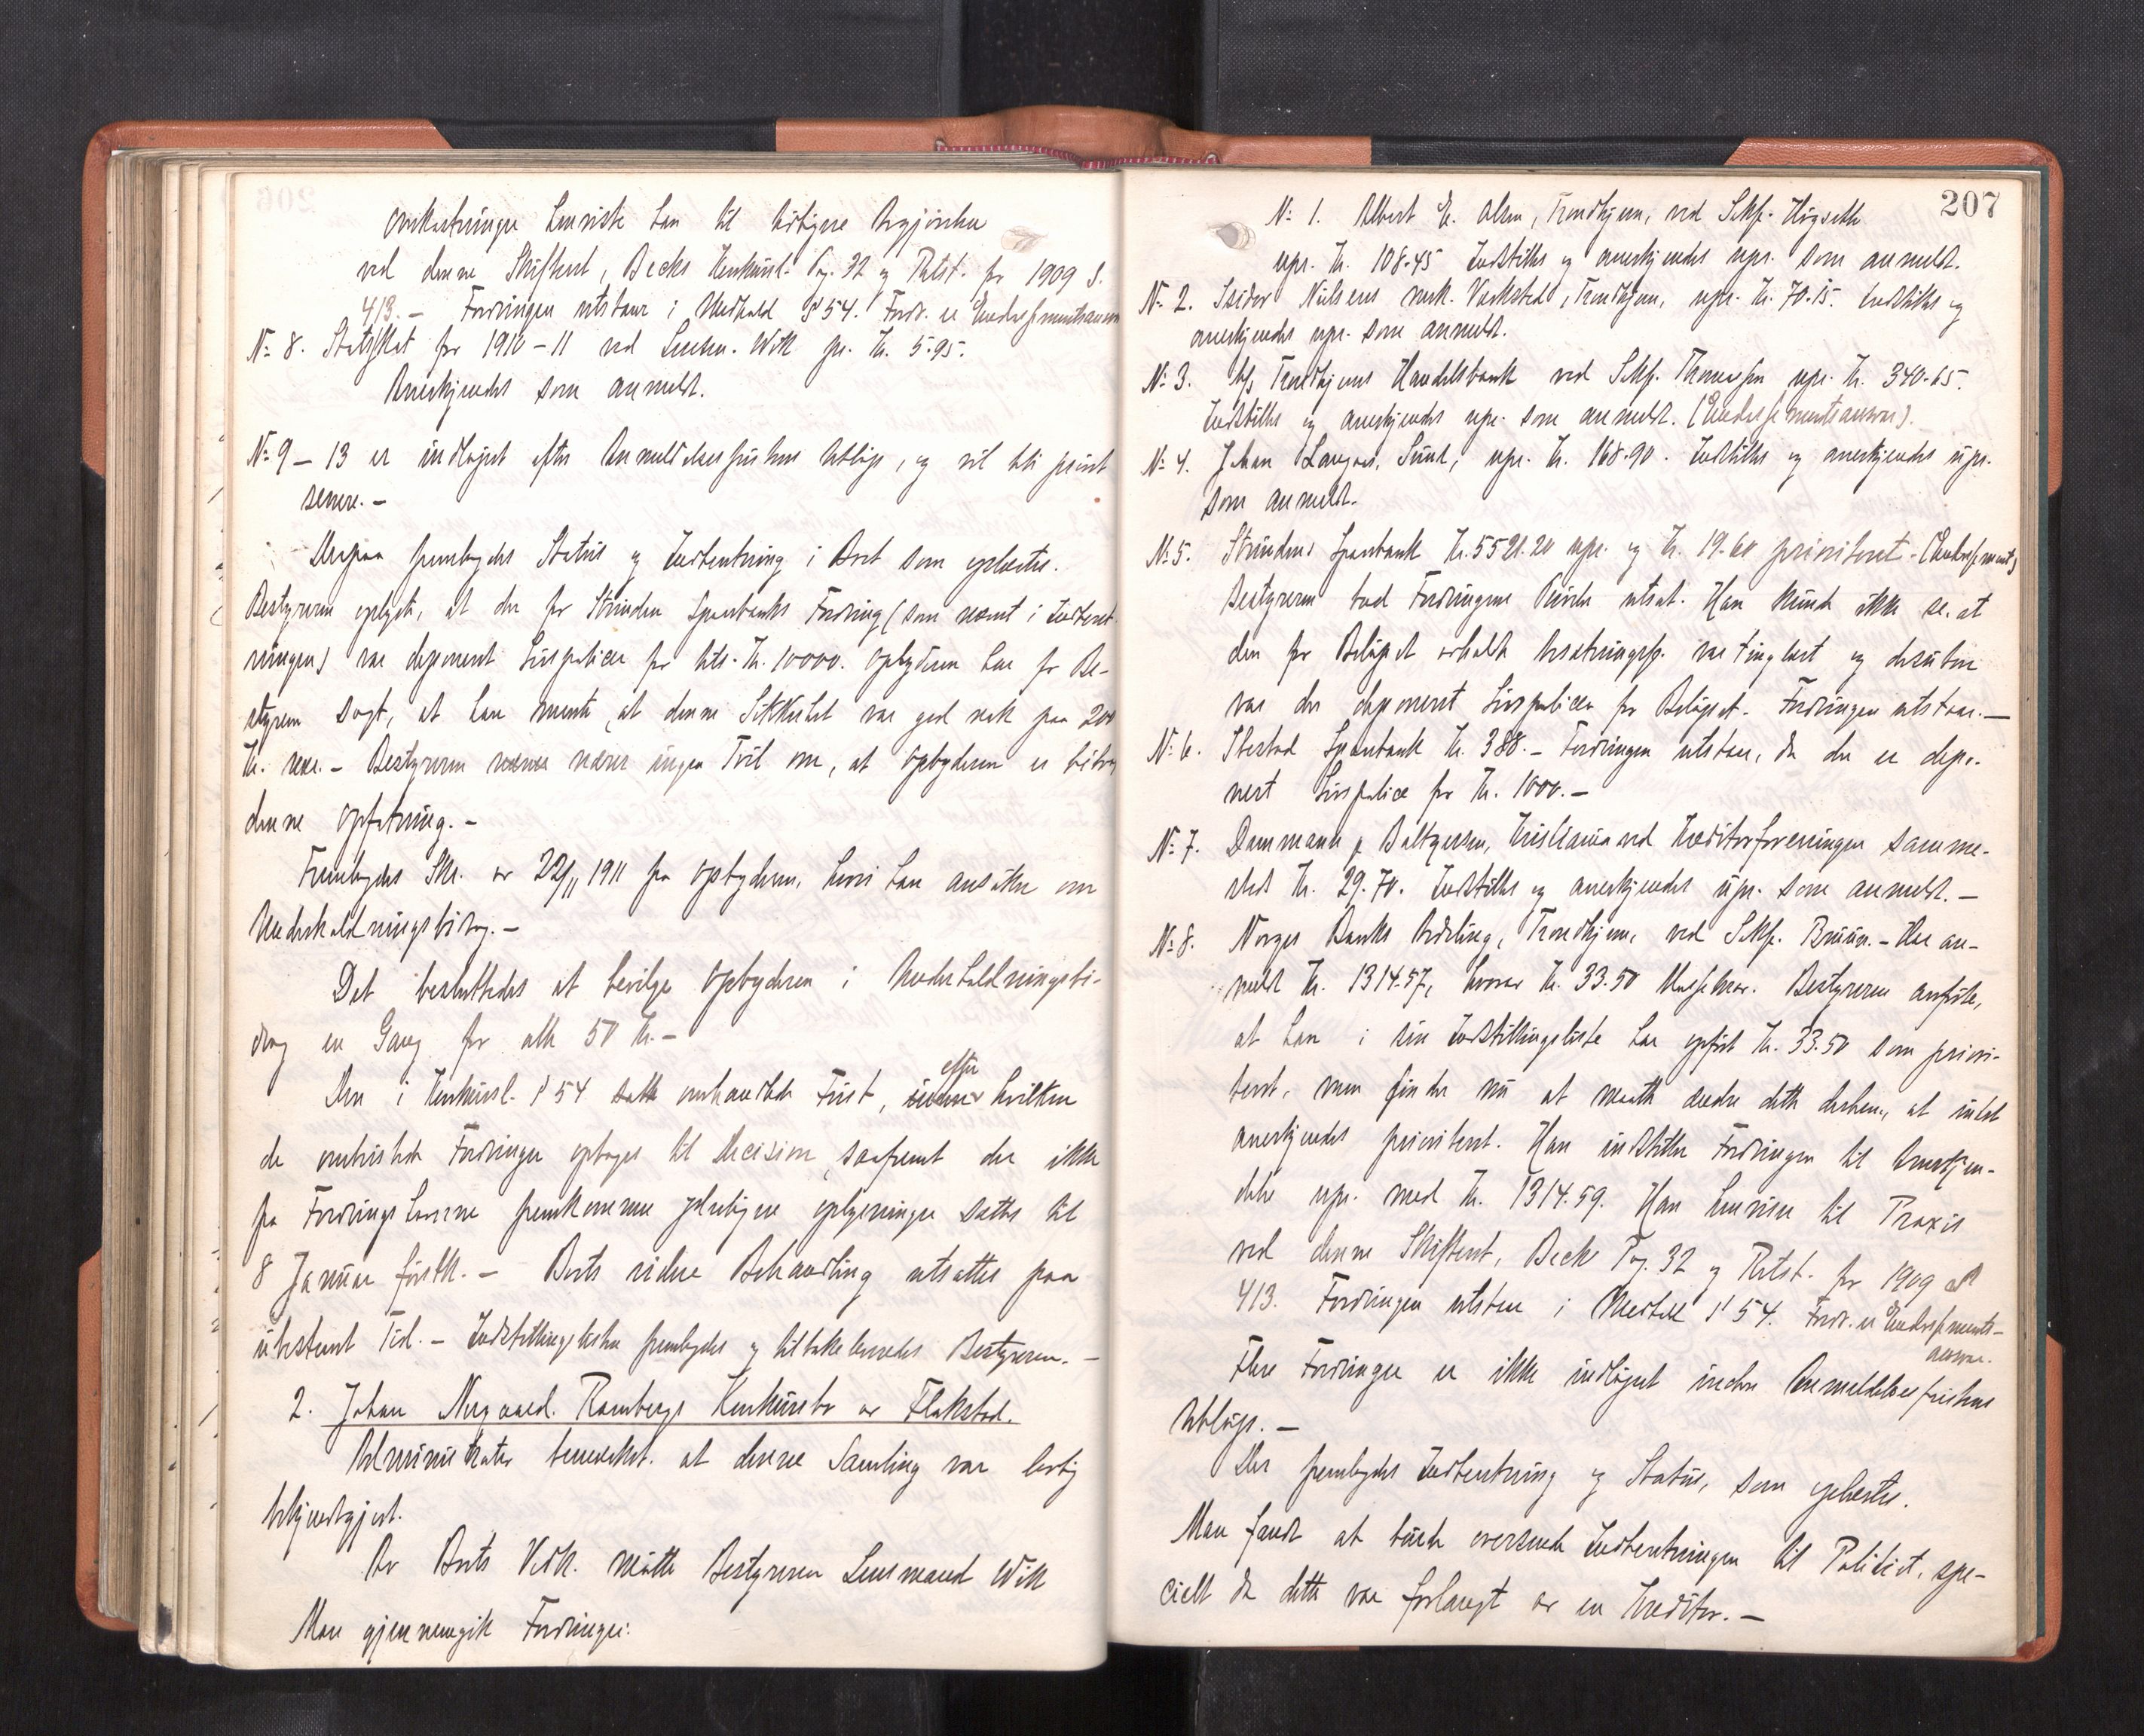 Omkostninger henviste han til tidligere Avgjörelser
ved denne Skifteret, Becks Konkursl. Pag. 32 og Retst. for 1909 S.
413. – Fordringen utstaar i Medhold § 54. Fordr. er Endossementsansvar
No 8. Statsskat for 1910–11 ved Lensm. Wik pr. Kr. 5.95.
Anerkjendes som anmeldt.
No 9 – 13 er indlöpet efter Anmeldelsesfristens Utlöp, og vil bli prövet
senere. –
Derpaa fremlagdes Status og Indberetning i Boet som oplæstes.
Bestyreren oplyste, at der for Strinden Sparebanks Fordring (som nævnt i Indberet-
ningen) var deponeret Livspolicer for tils. Kr. 10000. Opbyderen har for Be-
styreren sagt, at han mente, at denne Sikkerhet var god nok paa 200
Kr. nær. – Bestyreren nærer ingen Tvil om, at Opbyderen er
denne Opfatning. –
Fremlagdes Skr. av 22/11 1911 fra Opbyderen, hvori han ansöker om
Underholdningsbidrag. –
Det besluttedes at bevilge Opbyderen i Underholdningsbi-
drag en Gang for alle 50 Kr. –
Den i Konkursl. § 54 satte omhandlede Frist, efter hvilken
de omtvistede Fordringer optages til Decision, saafremt der ikke
fra Fordringshaverne fremkommer yderligere oplysninger sattes til
8 Januar förstk. – Boets videre Behandling utsattes paa
ubestemt Tid. – Indstillingslisten fremlagdes og tilbakeleveredes Bestyreren. –
2. Johan Nergaard Rambergs Konkursbo av Flakstad.
Administrator bemerket, at denne Samling var lovlig
bekjendtgjort.
Av Boets Vedk. mötte Bestyreren Lensmand Wik
Man gjennemgik Fordringer:
207
No 1. Albert E. Olsen, Trondhjem, ved Sakf. Högseth
upr. Kr. 108.45 Indstilles og anerkjendes upr. som anmeldt.
No 2. Isidor Nielsens mek. Verksted, Trondhjem, upr. Kr. 70.15. Indstilles og
anerkjendes upr. som anmeldt.
No 3. A/s Trondhjems Handelsbank ved Sakf. Thomessen upr. Kr. 340.65.
Indstilles og anerkjendes upr. som anmeldt. (Endossementsansvar).
No 4. Johan Langaas, Sund, upr. Kr. 168.90. Indstilles og anerkjendes upr.
som anmeldt.
No 5. Strinden Sparebank Kr. 5521.20 upr. og Kr. 19.60 prioriteret – (Endossement)
Bestyreren bad Fordringens Prövelse utsat. Han kunde ikke se at
den for Belöpet erholdte var tinglæst og desuten
var der deponeret Livspolicer for Belöpet. Fordringen utstaar. –
No 6. Ibestad Sparebank Kr. 388. – Fordringen utstaar, da der er depo-
nert Livspolice for Kr. 1000. –
No 7. Dammann & Baltzersen, Kristiania ved Kreditorforeningen samme-
steds Kr. 29.70. Indstilles og anerkjendes upr. som anmeldt. –
No 8. Norges Banks Avdeling, Trondhjem, ved Sakf. Bruun. – Har an-
meldt Kr. 1314.57, hvorav Kr. 33.50 Massekrav. Bestyreren anförte,
at han i sin Indstillingsliste har opfört Kr. 33.50 som priori-
teret, men finder nu at maatte ændre dette derhen, at intet
anerkjendes prioriteret. Han indstiller Fordringen til Anerkjen-
delse upr. med Kr. 1314.59. Han henviser til Praxis
ved denne Skifteret, Beck Pag. 32 og Retst. for 1909 S
413. Fordringen utstaar i Medhold § 54. Fordr. er Endossements-
ansvar.
Flere Fordringer er ikke indlöpet inden Anmeldelsesfristens
Utlöp. –
Der fremlagdes Indberetning og Status, som oplæstes.
Man fandt at burde oversende Indberetningen til Politiet, spe-
cielt da dette var forlangt av en Kreditor. –